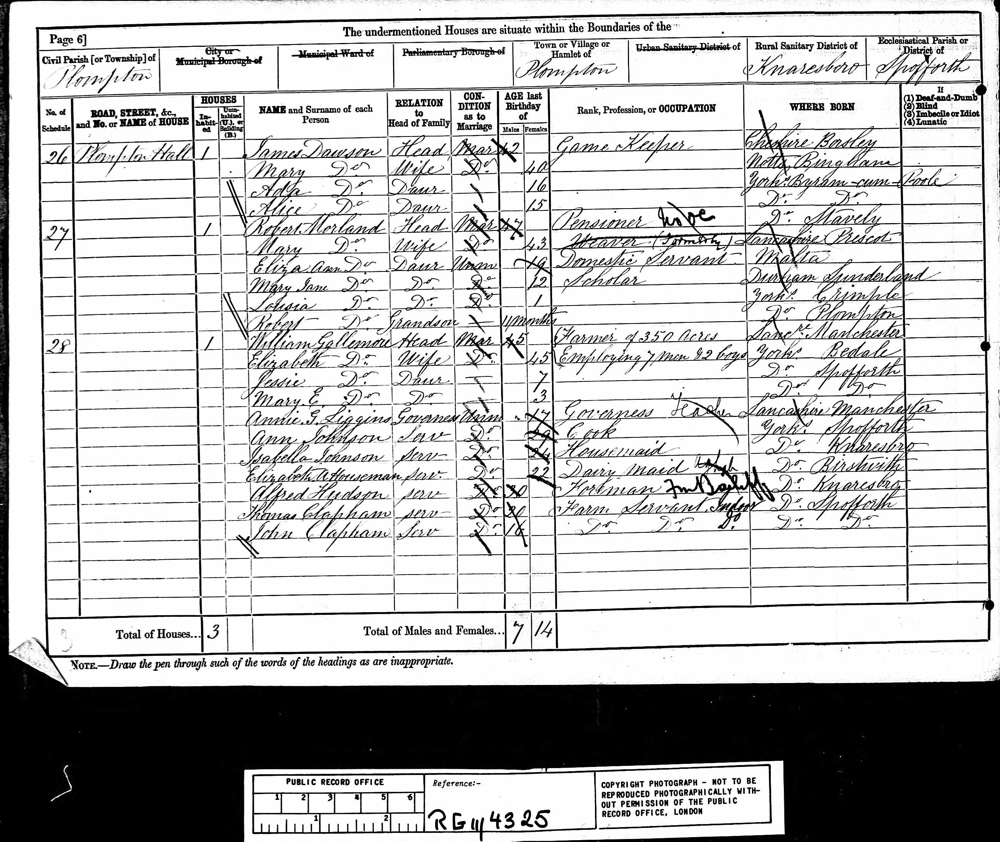 The undermentioned Houses are situate within the Boundaries of the
Page 6]
Civil Parish [or Township] of
Plompton
City or Municipal Borough of
Municipal Ward of
Parliamentary Borough of
Town or Village or Hamlet of
Plompton
Urban Sanitary District of
Rural Sanitary District of
Knaresboro
Ecclesiastical Parish or District of
Spofforth
No. of Schedule
ROAD, STREET, &c., and No. or NAME of HOUSE
HOUSES
Inhabited
Uninhabited (U.), or Building (B.)
NAME and Surname of each Person
RELATION to Head of Family
CONDITION as to Marriage
AGE last Birthday of
Males
Females
Rank, Profession, or OCCUPATION
WHERE BORN
If (1) Deaf-and-Dumb (2) Blind (3) Imbecile or Idiot (4) Lunatic
26 Plompton Hall 1 James Dawson Head Mar 42 Game Keeper Cheshire Bosley
Mary Do Wife Do 40 Notts Bingham
Ada Do Daur 16 Yorks. Byram-cum-Poole
Alice Do Daur 15 Do Do
27 1 Robert Morland Head Mar 47 Pensioner Do Stavely
Mary Do Wife Do 43 Weaver (Formerly) Lancashire Prescot
Eliza Ann Do Daur Unm 19 Domestic Servant Malta
Mary Jane Do Do Do 12 Scholar Durham Sunderland
Lousia Do Do Do 1 Yorks. Crimple
Robert Do Grandson 11 months Do Plompton
28 1 William Gallemore Head Mar 45 Farmer of 350 Acres Manchester
Elizabeth Do Wife Do 45 Employing 7 men & 2 boys Yorks Bedale
Jessie Do Daur 7 Do Spofforth
Mary E. Do Do 3 Do Do
Annie G. Liggins Governess Unm 17 Governess Teacher Lancashire Manchester
Ann Johnson Serv Do 29 Cook Yorks. Spofforth
Isabella Johnson Serv Do 24 Housemaid Do Knaresbro
Elizabeth A Houseman serv. Do 22 Dairy Maid Do Birstwith
Alfred Hudson serv Do Foreman Do Knaresbro
Thomas Clapham serv Do 20 Farm Servant Indoor Do Spofforth
John Clapham Serv Do 16 Do Do Do Do Do
Total of Houses... 3
Total of Males and Females... 7 14
NOTE.—Draw the pen through such of the words of the headings as are inappropriate.
PUBLIC RECORD OFFICE
1 2 3 4 5 6
1 2
Reference:-
RG 11/4325
COPYRIGHT PHOTOGRAPH - NOT TO BE
REPRODUCED PHOTOGRAPHICALLY WITH-
OUT PERMISSION OF THE PUBLIC
RECORD OFFICE, LONDON